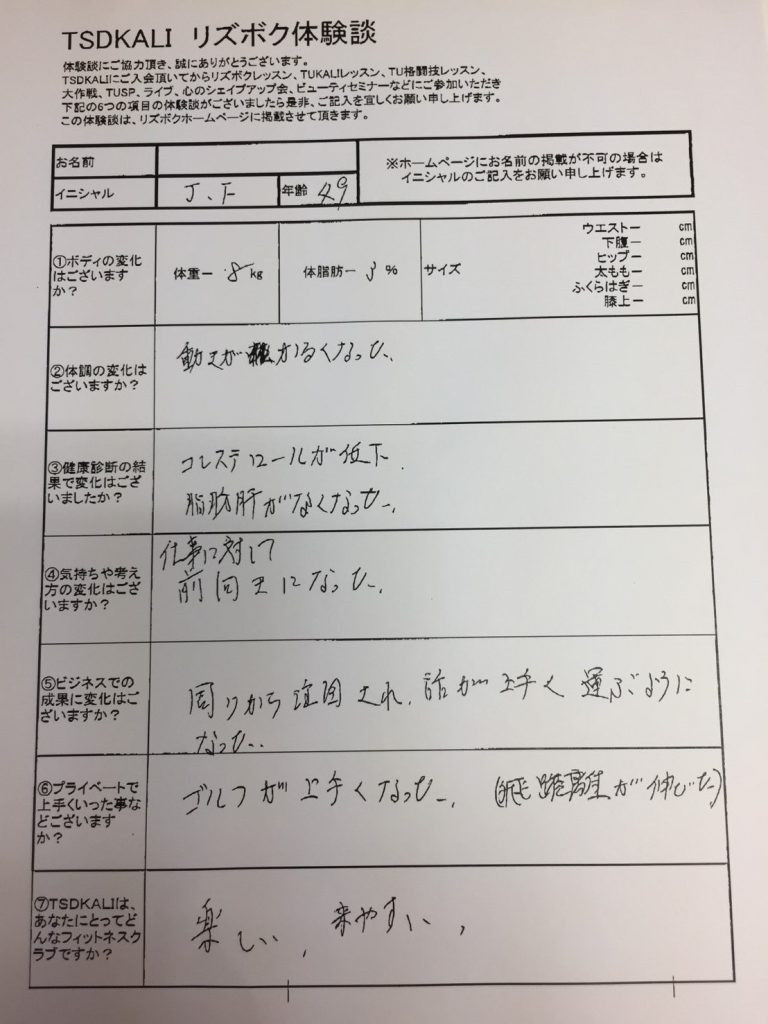 TSDKALI リズボク体験談
体験談にご協力頂き、誠にありがとうございます。
TSDKALIにご入会頂いてからリズボクレッスン、TUKALIレッスン、TU格闘技レッスン、
大作戦、TUSP、ライブ、心のシェイプアップ会、ビューティセミナーなどにご参加いただき
下記の6つの項目の体験談がございましたら是非、ご記入を宜しくお願い申し上げます。
この体験談は、リズボクホームページに掲載させて頂きます。
お名前
※ホームページにお名前の掲載が不可の場合は
イニシャルのご記入をお願い申し上げます。
イニシャル J.F 年齢 49
①ボディの変化
はございます
か?
体重ー 8 kg 体脂肪ー 3 % サイズ
ウエストー cm
下腹ー cm
ヒップー cm
太ももー cm
ふくらはぎー cm
膝上ー cm
②体調の変化は
ございますか?
動きがかるくなった。
③健康診断の結
果で変化はござ
いましたか?
コレステロールが低下
脂肪肝がなくなった。
④気持ちや考え
方の変化はござ
いますか?
仕事に対して
前向きになった。
⑤ビジネスでの
成果に変化はご
ざいますか?
周りから注目され、話が上手く運ぶように
なった。
⑥プライベートで
上手くいった事な
どございます
か?
ゴルフが上手くなった。(飛距離が伸びた)
⑦TSDKALIは、
あなたにとってど
んなフィットネスク
ラブですか?
楽しい、来やすい、